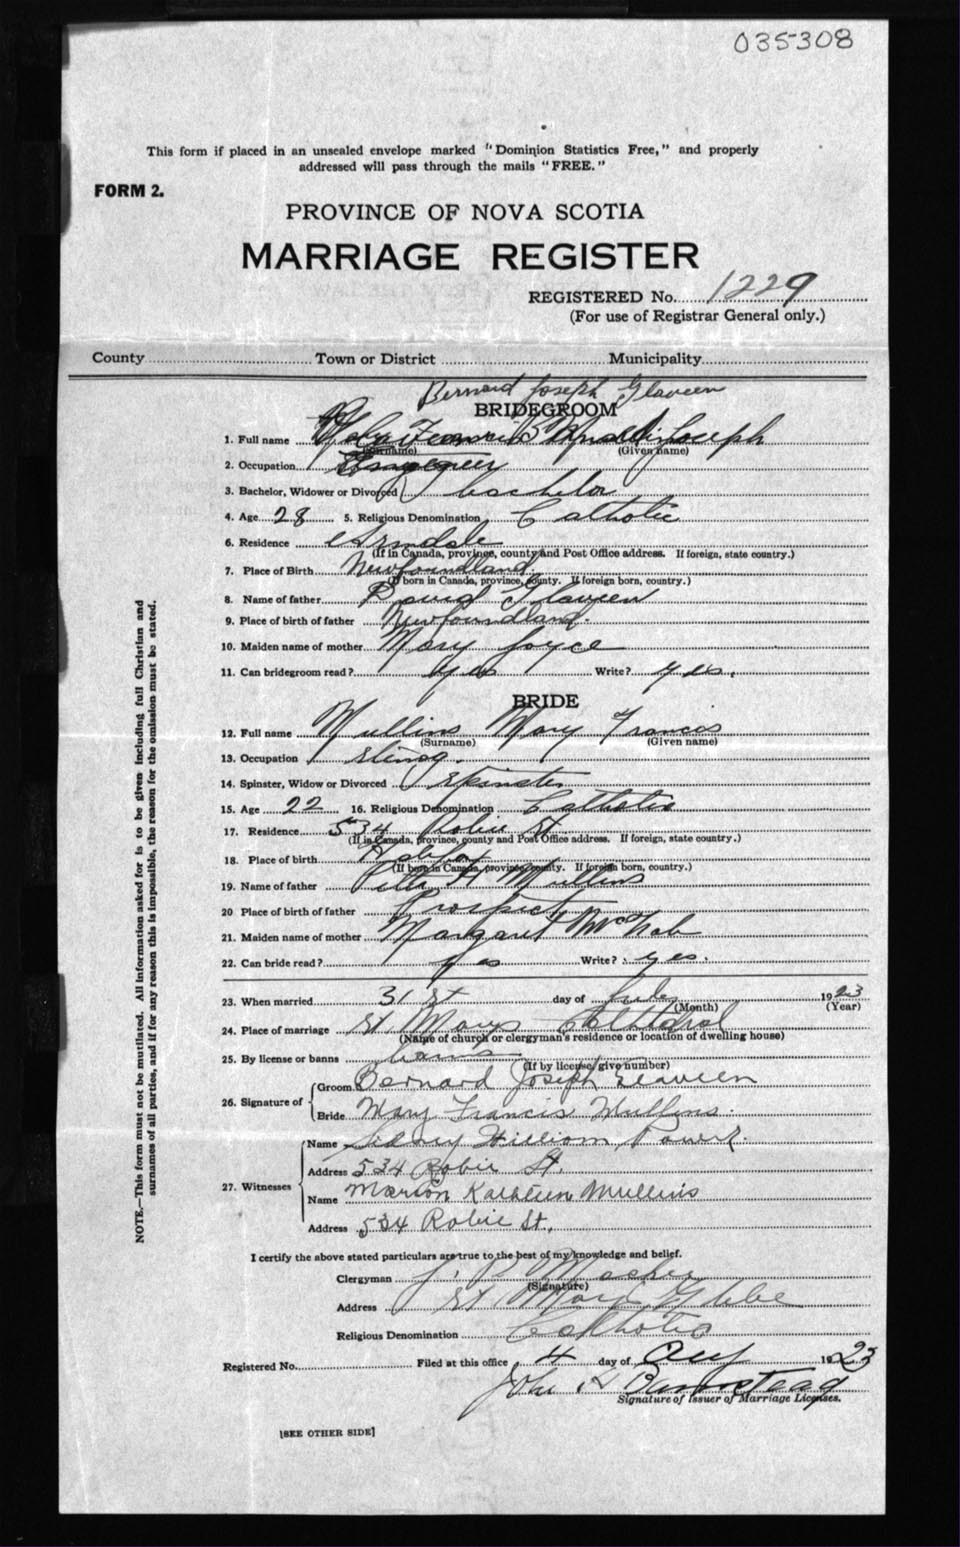 035308
This form if placed in an unsealed envelope marked "Dominion Statistics Free," and properly
addressed will pass through the mails "FREE."
FORM 2.
PROVINCE OF NOVA SCOTIA
MARRIAGE REGISTER
REGISTERED No. 1229
(For use of Registrar General only.)
County Town or District Municipality
Bernard Joseph Glaveen
BRIDEGROOM
1. Full name Joseph
(Surname) (Given name)
2. Occupation
3. Bachelor, Widower or Divorced bachelor
4. Age 28 5. Religious Denomination Catholic
6. Residence Armdale
(If in Canada, province, county and Post Office address. If foreign, state country.)
7. Place of Birth Newfoundland.
(If born in Canada, province, county. If foreign born, country.)
8. Name of father David Glaveen
9. Place of birth of father Newfoundland.
10. Maiden name of mother Mary Joyce
11. Can bridegroom read? yes Write? yes.
BRIDE
12. Full name Mullins Mary Francis
(Surname) (Given name)
13. Occupation stenog.
14. Spinster, Widow or Divorced Spinster
15. Age 22 16. Religious Denomination Catholic
17. Residence 534 Robie St
(If in Canada, province, county and Post Office address. If foreign, state country.)
18. Place of birth Halifax
(If born in Canada, province, county. If foreign born, country.)
19. Name of father Peter H Mullins
20 Place of birth of father Prospect
21. Maiden name of mother Margaret McNab
22. Can bride read? yes Write? yes.
23. When married 31 st day of July 1923
(Month) (Year)
24. Place of marriage St Marys Cathedral
(Name of church or clergyman's residence or location of dwelling house)
25. By license or banns banns
(If by license, give number)
26. Signature of Groom Bernard Joseph Glaveen
Bride Mary Francis Mullins.
27. Witnesses Name Sidney William Power.
Address 534 Robie St.
Name Marion Kathleen Mullins
Address 534 Robie St.
I certify the above stated particulars are true to the best of my knowledge and belief.
Clergyman J. P.
(Signature)
Address St Marys Glebe
Religious Denomination Catholic
Registered No. Filed at this office 4 day of Aug 1923
John H Barnstead
Signature of Issuer of Marriage Licenses.
[SEE OTHER SIDE]
NOTE.—This form must not be mutilated. All information asked for is to be given including full Christian and
surnames of all parties, and if for any reason this is impossible, the reason for the omission must be stated.